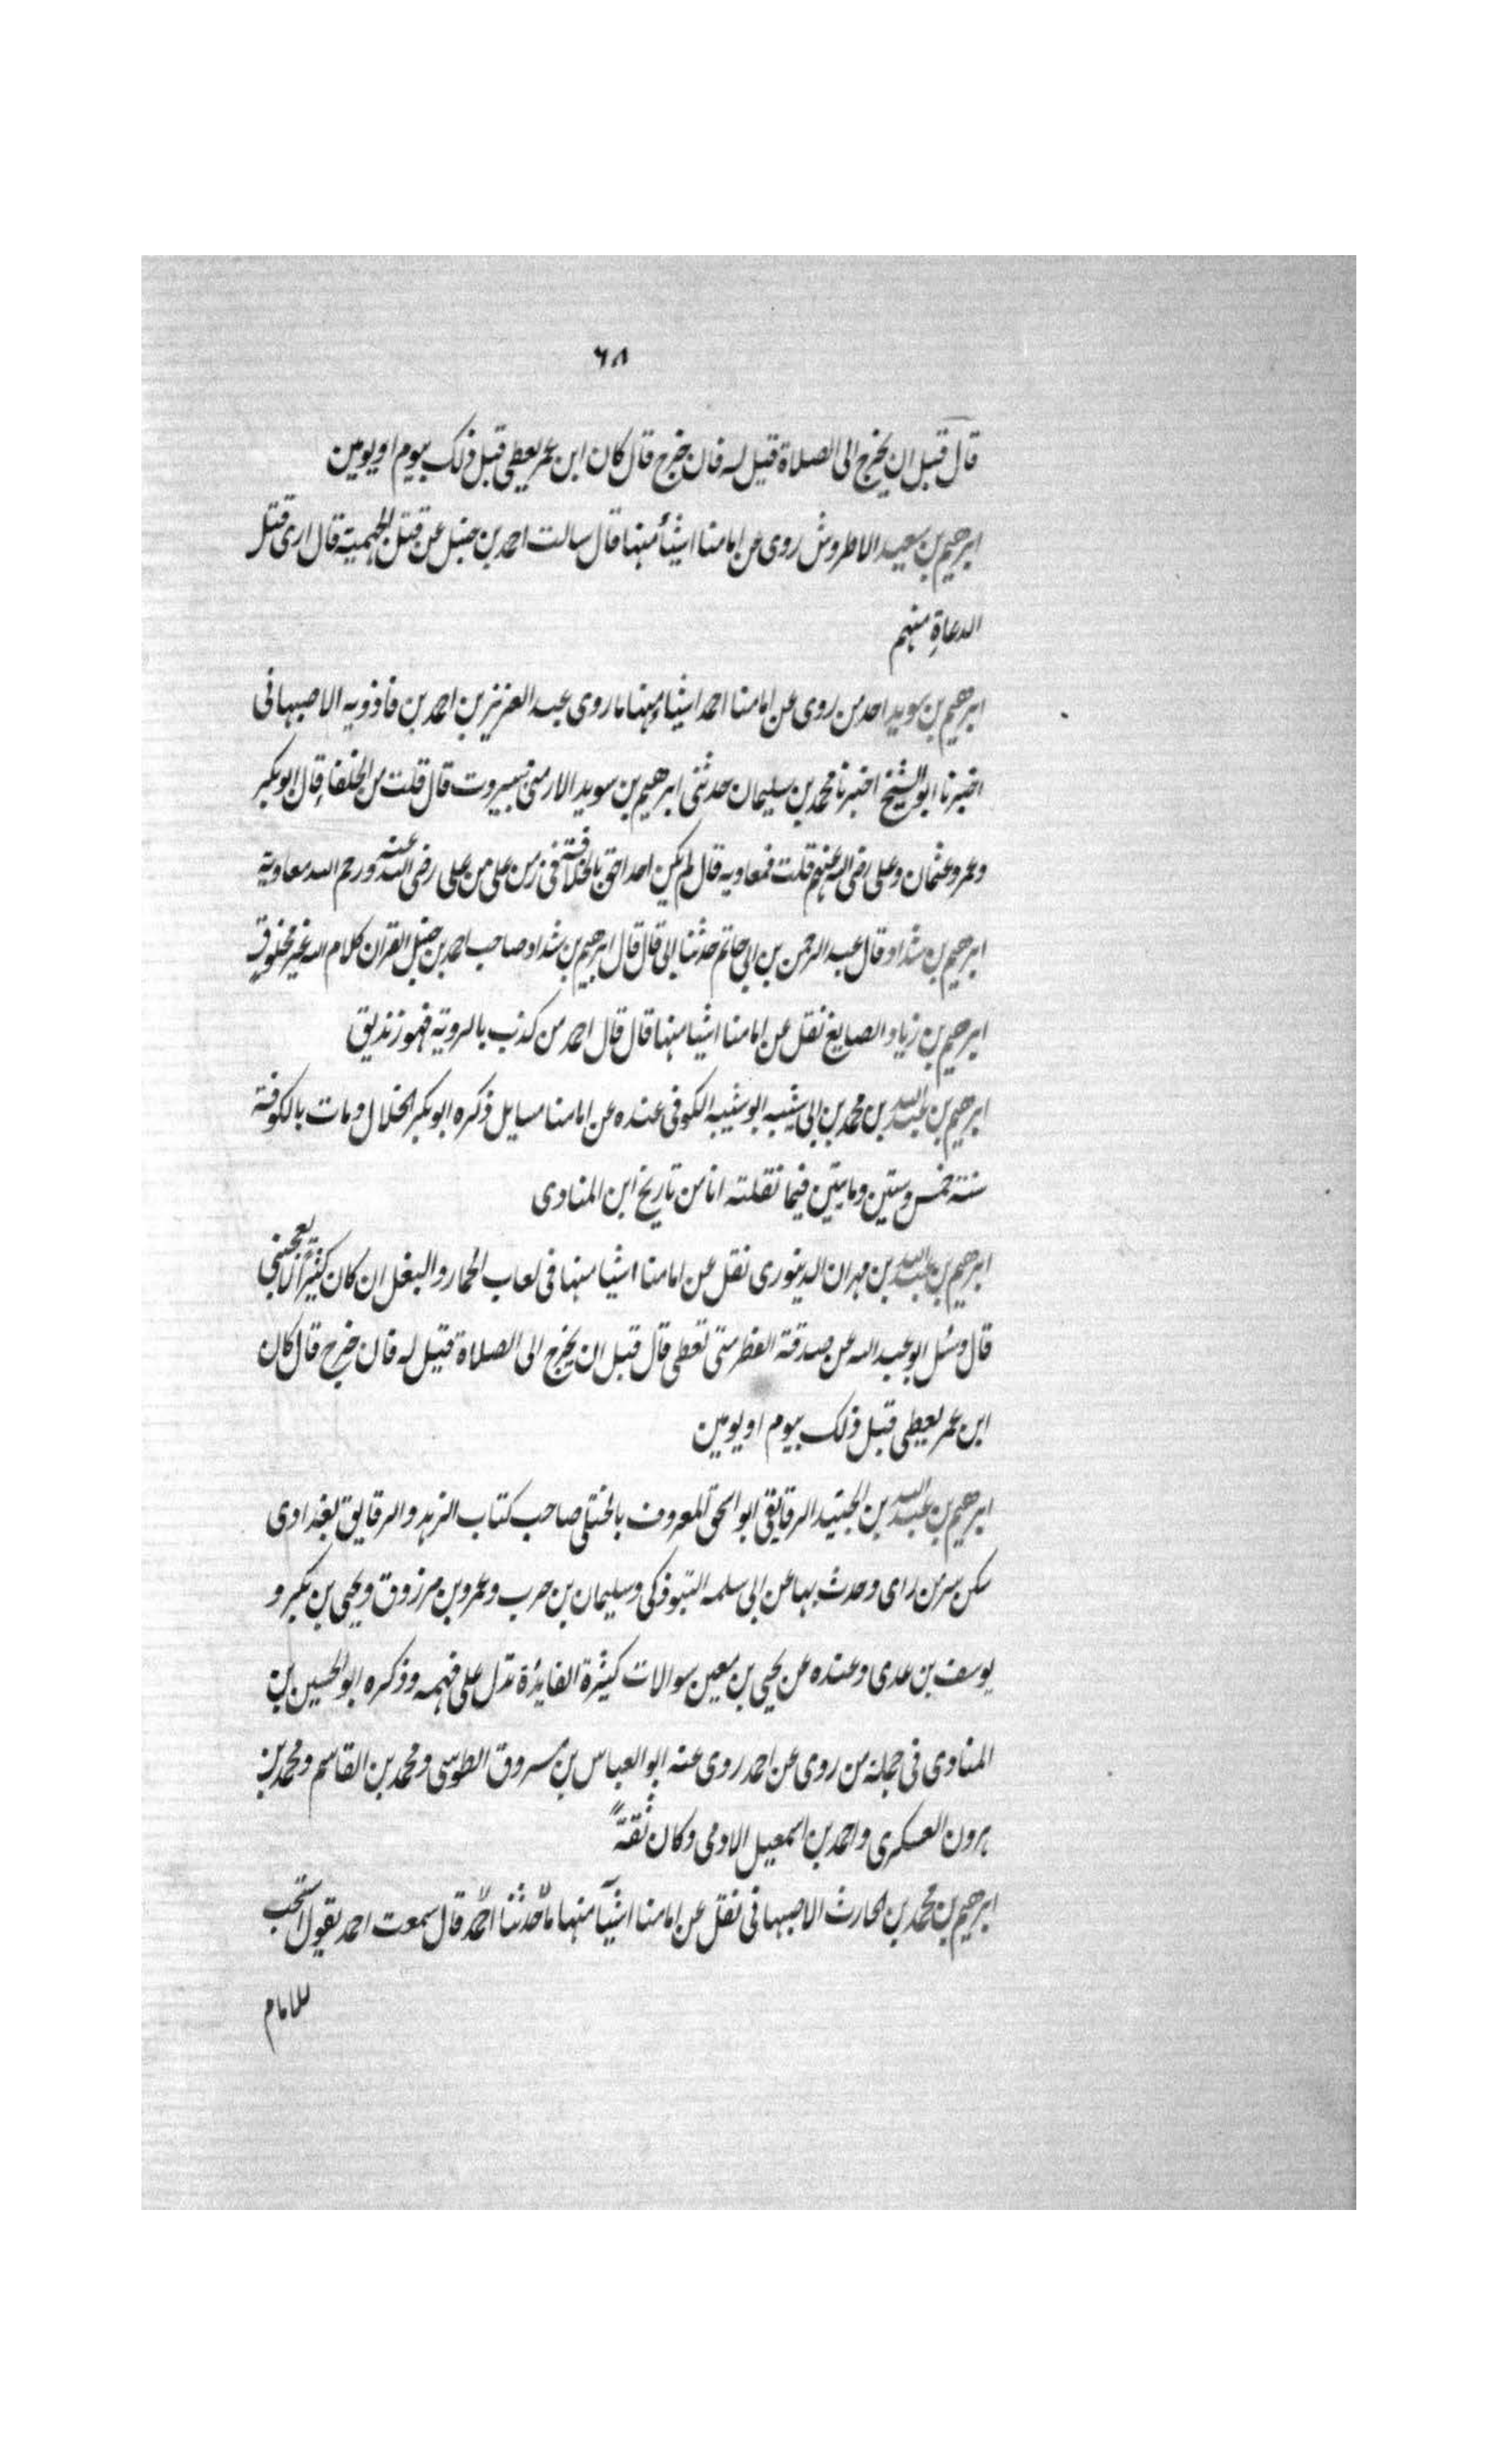 ٦٨
قال قبل ان يخرج الى الصلاة قيل له فان خرج قال كان ابن عمر يعطى قبل ذلك بيوم او يومين
ابرهيم بن سعيد الاطروش روى عن امامنا اشيأ منها قال سالت احمد بن حنبل عن قتل الجهمية قال ارى قتل
الدعاة منهم
ابرهيم بن سويد احد من روى عن امامنا احمد اشياء منها ما روى عبد العزيز بن احمد بن فاذويه الاصبهانى
اخبرنا ابو الشيخ اخبرنا محمد بن سليمان حدثنى ابرهيم بن سويد الارمنى ببيروت قال قلت من الخلفاء قال ابو بكر
وعمر وعثمان وعلى رضى الله عنهم قلت فمعاويه قال لم يكن احد احق بالخلافة فى زمن على من على رضى الله عنه ورحم الله معاوية
ابرهيم بن شداد قال عبد الرحمن بن ابى حاتم حدثنا ابى قال قال ابرهيم بن شداد صاحب احمد بن حنبل القران كلام الله غير مخلوق
ابرهيم بن زياد الصايغ نقل عن امامنا اشيا منها قال قال احمد من كذب بالروية فهو زنديق
ابرهيم بن عبد الله بن محمد بن ابى شيبه ابو شيبه الكوفى عنده عن امامنا مسايل ذكره ابو بكر الخلال ومات بالكوفة
سنة خمس وستين ومايتين فيما نقلته انا من تاريخ ابن المناوى
ابرهيم بن عبد الله بن مهران الدينورى نقل عن امامنا اشيا منها فى لعاب الحمار والبغل ان كان كثيرًا لا يعجبنى
قال وسئل ابو عبد الله عن صدقة الفطر متى تعطى قال قبل ان يخرج الى الصلاة قيل له فان خرج قال كان
ابن عمر يعطى قبل ذلك بيوم او يومين
ابرهيم بن عبد الله بن الجنيد الرقايقى ابو اسحق المعروف بالختلى صاحب كتاب الزهد والرقايق بغدادى
سكن سر من راى وحدث بها عن ابى سلمه التبوذكى وسليمان بن حرب وعمرو بن مرزوق ويحيى بن بكير و
يوسف بن عدى وعنده عن يحيى بن معين سوالات كثيرة الفايدة تدل على فهمه وذكره ابو الحسين بن
المناوى فى جملة من روى عن احمد روى عنه ابو العباس بن مسروق الطوسى ومحمد بن القاسم ومحمد بن
هرون العسكرى واحمد بن اسمعيل الادمى وكان ثقةً
ابرهيم بن محمد بن الحارث الاصبهانى نقل عن امامنا اشيآ منها ما حدثنا احمد قال سمعت احمد يقول استحب
للامام